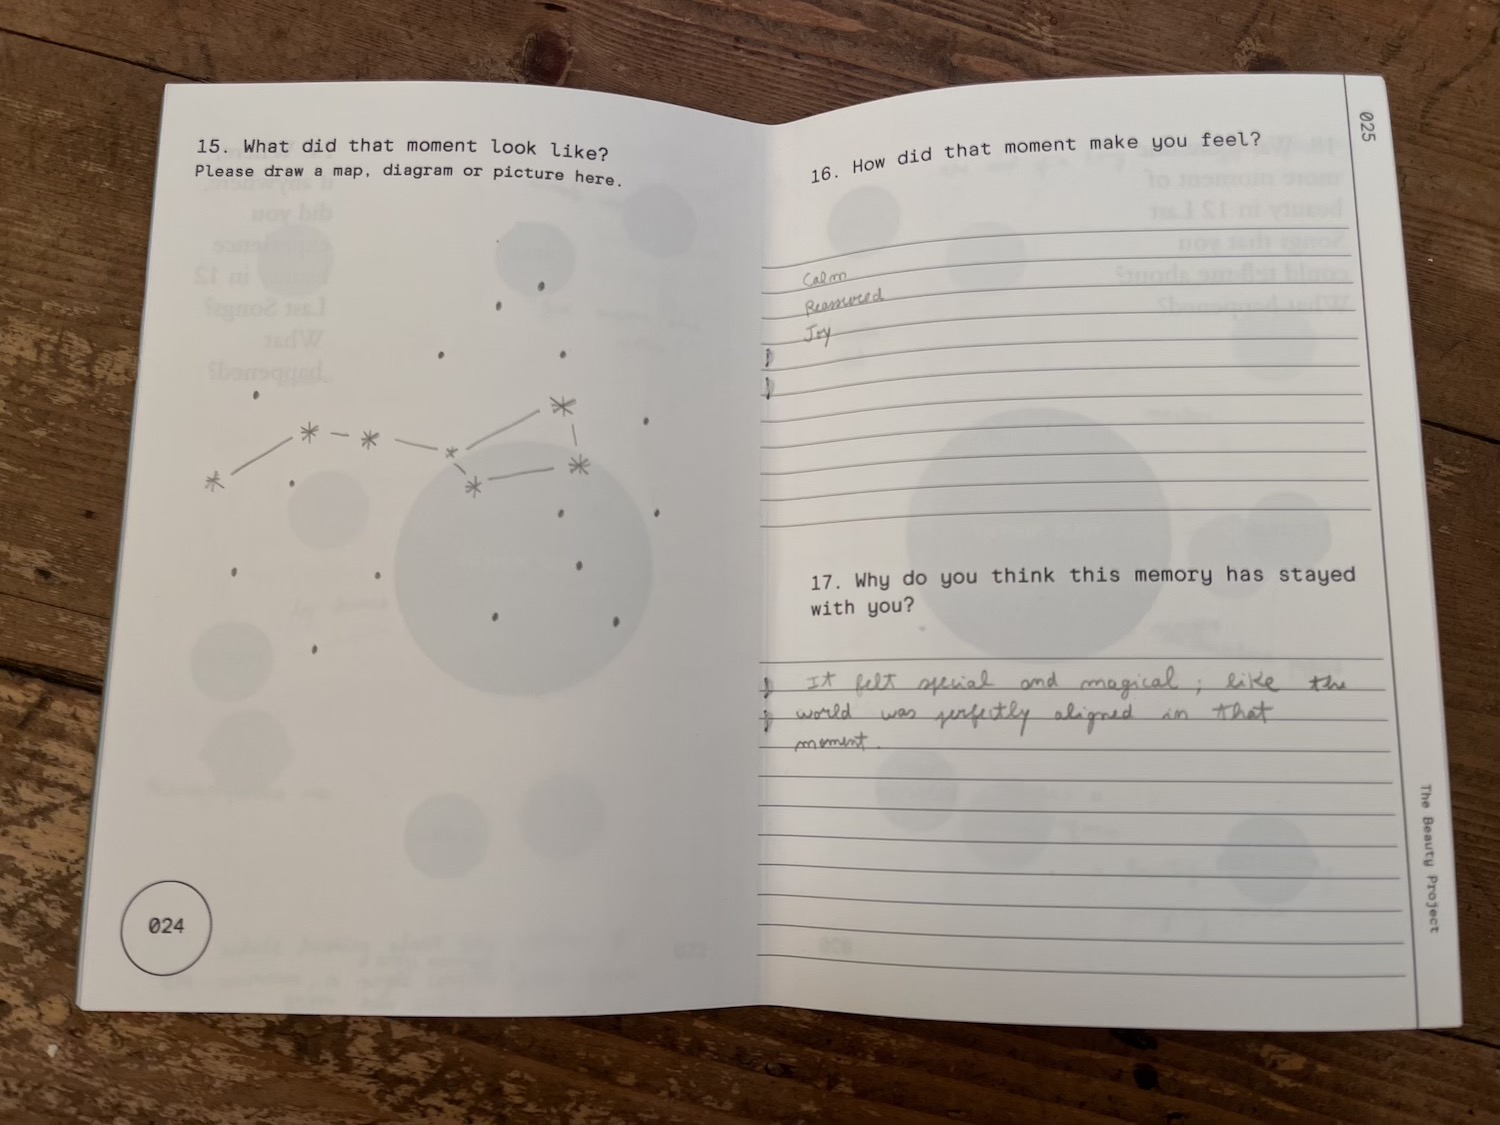 15. What did that moment look like?
Please draw a map, diagram or picture here.
024
16. How did that moment make you feel?
Calm
Reassured
Joy
17. Why do you think this memory has stayed
with you?
It felt special and magical; like the
world was perfectly aligned in that
moment.
025
The Beauty Project